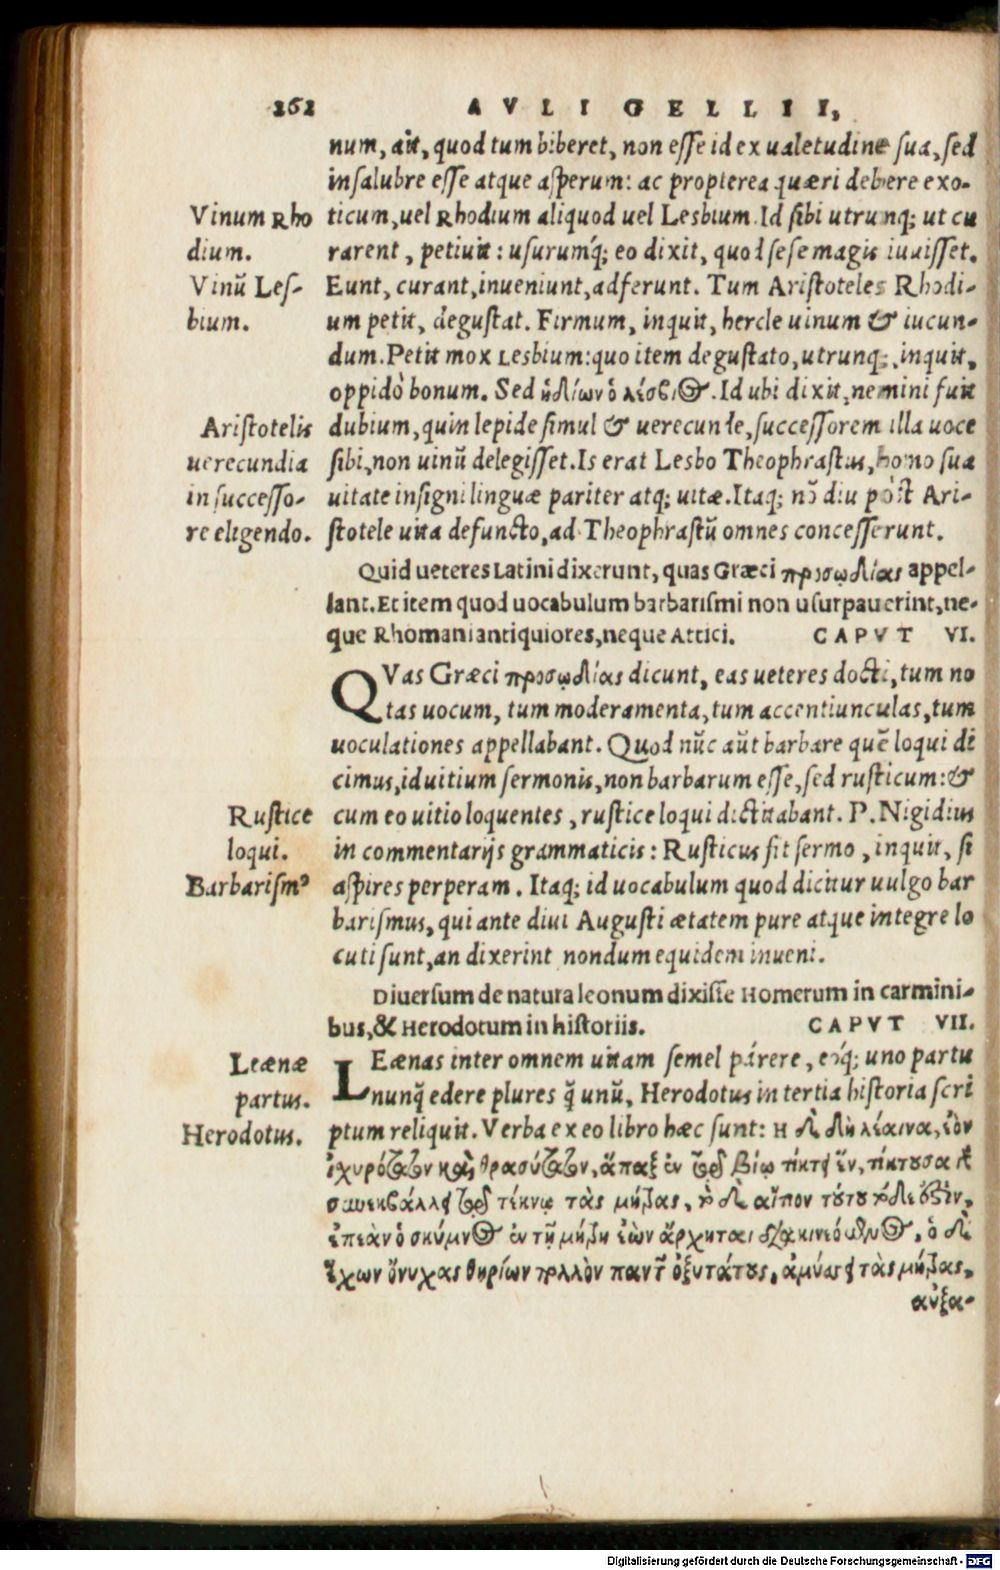 262 AVLI GELLII,
num, ait, quod tum biberet, non esse id ex ualetudine sua, sed
insalubre esse atque asperum: ac propterea quæri debere exo-
Vinum Rho
dium.
ticum, uel Rhodium aliquod uel Lesbium. Id sibi utrunq; ut cu
rarent, petiuit: usurumq́; eo dixit, quod sese magis iuuisset.
Vinũ Les-
bium.
Eunt, curant, inueniunt, adferunt. Tum Aristoteles Rhodi-
um petit, degustat. Firmum, inquit, hercle uinum & iucun-
dum. Petit mox Lesbium: quo item degustato, utrunq;, inquit,
oppidò bonum. Sed ἡδίων ὁ λέσβιος. Id ubi dixit, nemini fuit
Aristotelis
uerecundia
in successo-
re eligendo.
dubium, quin lepide simul & uerecunde, successorem illa uoce
sibi, non uinũ delegisset. Is erat Lesbo Theophrastus, homo sua
uitate insigni linguæ pariter atq; uitæ. Itaq; nõ diu pòst Ari-
stotele uita defuncto, ad Theophrastũ omnes concesserunt.
Quid ueteres Latini dixerunt, quas Græci προσῳδίας appel-
lant. Et item quod uocabulum barbarismi non usurpauerint, ne-
que Rhomani antiquiores, neque Attici. CAPVT VI.
QVas Græci προσῳδίας dicunt, eas ueteres docti, tum no
tas uocum, tum moderamenta, tum accentiunculas, tum
uoculationes appellabant. Quod nũc aũt barbare quẽ loqui di
cimus, id uitium sermonis, non barbarum esse, sed rusticum: &
Rustice
loqui.
Barbarismꝰ
cum eo uitio loquentes, rustice loqui dictitabant. P. Nigidius
in commentarijs grammaticis: Rusticus fit sermo, inquit, si
aspires perperam. Itaq; id uocabulum quod dicitur uulgo bar
barismus, qui ante diui Augusti ætatem pure atque integre lo
cuti sunt, an dixerint nondum equidem inueni.
Diuersum de natura leonum dixisse Homerum in carmini-
bus, & Herodotum in historiis. CAPVT VII.
Leænæ
partus.
Herodotus.
LEænas inter omnem uitam semel párere, eóq; uno partu
nunq̃ edere plures q̃ unũ, Herodotus in tertia historia scri
ptum reliquit. Verba ex eo libro hæc sunt: Η δὲ δὴ λέαινα, ἐὸν
ἰχυρότατον καὶ θρασύτατον, ἅπαξ ἐν τῷ βίῳ τίκτει ἕν, τίκτουσα γὰρ
συνεκβάλλει τῷ τέκνῳ τὰς μήτρας, τὸ δὲ αἴτιον τούτου τόδε ἐστίν,
ἐπεὰν ὁ σκύμνος ἐν τῇ μήτρῃ ἐὼν ἄρχηται διακινεόμενος, ὁ δὲ
ἔχων ὄνυχας θηρίων πολλὸν πάντων ὀξυτάτους, ἀμύσσει τὰς μήτρας,
αὐξα-
Digitalisierung gefördert durch die Deutsche Forschungsgemeinschaft - DFG